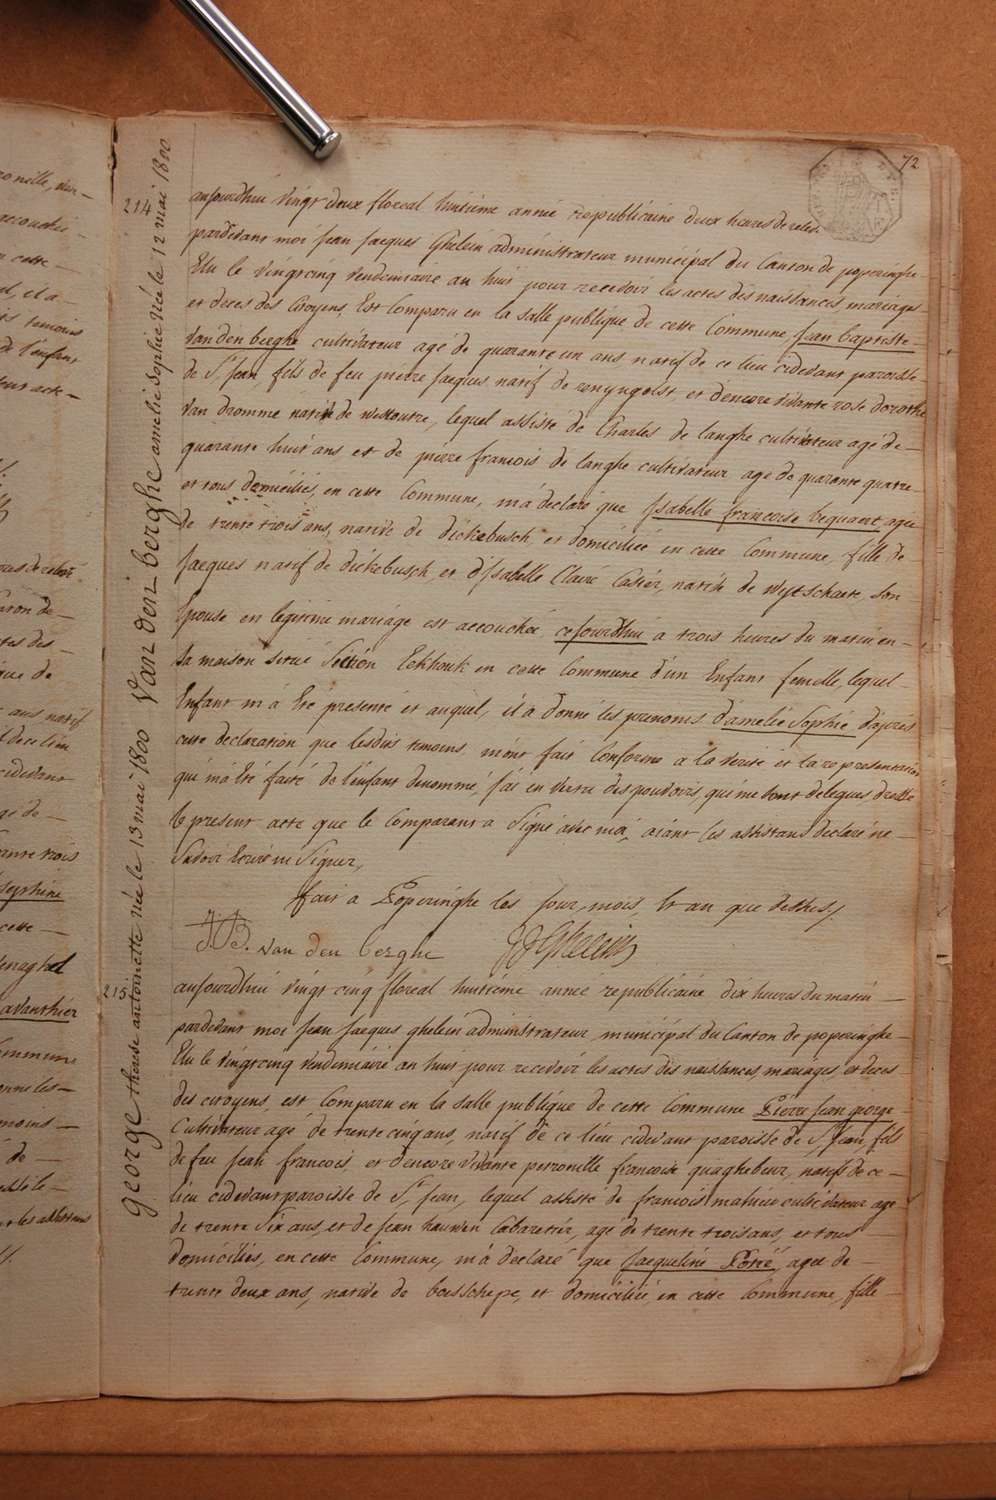 72
214
van den berghe amelie Sophie née le 12 mai 1800
aujourdhui vingt deux floreal huitieme année republicaine deux heures de relev.
pardevant moi Jean Jacques Ghelein administrateur municipal du Canton de poperinghe
Elu le vingtcinq vendemiaire an huit pour recevoir les actes des naissances, mariages
et deces des Citoyens, Est Comparu en la salle publique de cette Commune, Jean baptiste
van den berghe cultivateur agé de quarante un ans natif de ce lieu cidevant paroisse
de St. Jean, fils de feu pierre Jacques natif de renyngelst et d'encore vivante rose dorothé
van dromme native de westoutre, lequel assisté de Charles de langhe cultivateur agé de
quarante huit ans, et de pierre francois de langhe cultivateur agé de quarante quatre
et tous domiciliés, en cette Commune, m'a declaré que Isabelle francoise bequaert agée
de trente trois ans, native de dickebusch et domiciliée en cette Commune, fille de
Jacques natif de dickebusch, et d'Isabelle Claire Casier, native de wytschaete, son
Epouse en legitime mariage est accouchée, cejourdhui a trois heures du matin en
sa maison située Section Eekhoutk en cette Commune d'un Enfant femelle, lequel
Enfant m'a Eté presenté et auquel, il a donné les prenoms d'amelie Sophie d'après
cette declaration que lesdits temoins m'ont fait Conforme a la verité et la representation
qui m'a Eté faite de l'enfant denommé, j'ai en vertu des pouvoirs, qui me sont delegués
le present acte que le Comparant a Signé avec moi, aiant les assistans declaré ne
Savoir Ecrire ni Signer,
fait a Poperinghe les jour, mois, Et an que dessus,
J.B. van den berghe JJGhelein
215
george therese antoinette née le 13 mai 1800
aujourdhui vingt cinq floreal huitieme année republicaine dix heures du matin
pardevant moi Jean Jacques ghelein administrateur municipal du Canton de poperinghe
Elu le vingtcinq vendemiaire an huit pour recevoir les actes des naissances, mariages, et deces
des citoyens, est Comparu en la salle publique de cette Commune Pierre Jean george
Cultivateur agé de trente cinq ans, natif de ce lieu cidevant paroisse de St. Jean, fils
de feu Jean francois, et d'encore vivante petronille francoise quaghebeur, native de ce
lieu cidevant paroisse de St. Jean, lequel assisté de francois mahieu cultivateur agé
de trente Six ans, et de Jean hauwen Cabaretier, agé de trente trois ans, et tous
domiciliés, en cette Commune, m'a declaré que Jacqueline Potié, agée de
trente deux ans, native de boesschepe, et domiciliée en cette Commune, fille